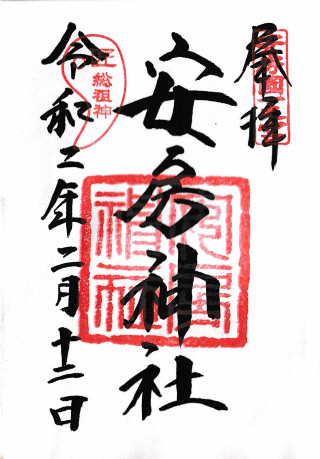 奉拝
安房神社
令和二年二月十二日
総祖神